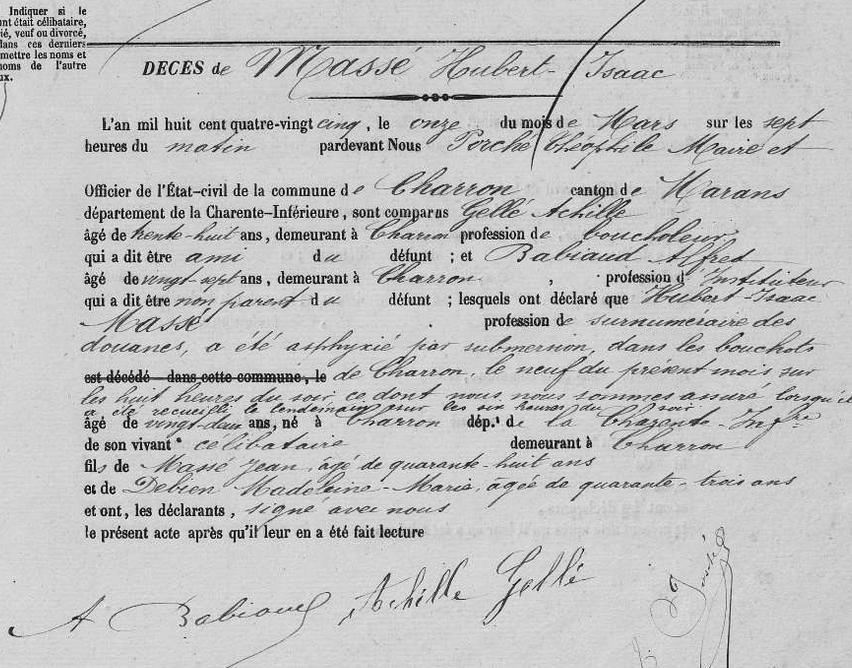 Indiquer si le
nt était célibataire,
ié, veuf ou divorcé,
dans ces derniers
mettre les noms et
noms de l'autre
ux.
DÉCÈS de Massé Hubert-Isaac
L'an mil huit cent quatre-vingt cinq, le onze du mois de Mars sur les sept
heures du matin pardevant Nous Porché Théophile Maire et
Officier de l'État-civil de la commune de Charron canton de Marans
département de la Charente-Inférieure, sont comparus Gellé Achille
âgé de trente-huit ans, demeurant à Charron profession de boucholeur
qui a dit être ami du défunt ; et Babiaud Alfred
âgé de vingt-sept ans, demeurant à Charron, profession d'Instituteur
qui a dit être non parent du défunt ; lesquels ont déclaré que Hubert-Isaac
Massé profession de surnuméraire des
douanes, a été asphyxié par submersion, dans les bouchots
est décédé dans cette commune, le de Charron, le neuf du présent mois sur
les huit heures du soir ce dont nous nous sommes assuré lorsqu'il
a été recueilli le lendemain sur les six heures du soir
âgé de vingt-deux ans, né à Charron dép.t de la Charente-Infre
de son vivant célibataire demeurant à Charron
fils de Massé Jean, âgé de quarante-huit ans
et de Debien Madeleine-Marie, âgée de quarante-trois ans
et ont, les déclarants, signé avec nous
le présent acte après qu'il leur en a été fait lecture
A Babiaud Achille Gellé
T. Porché